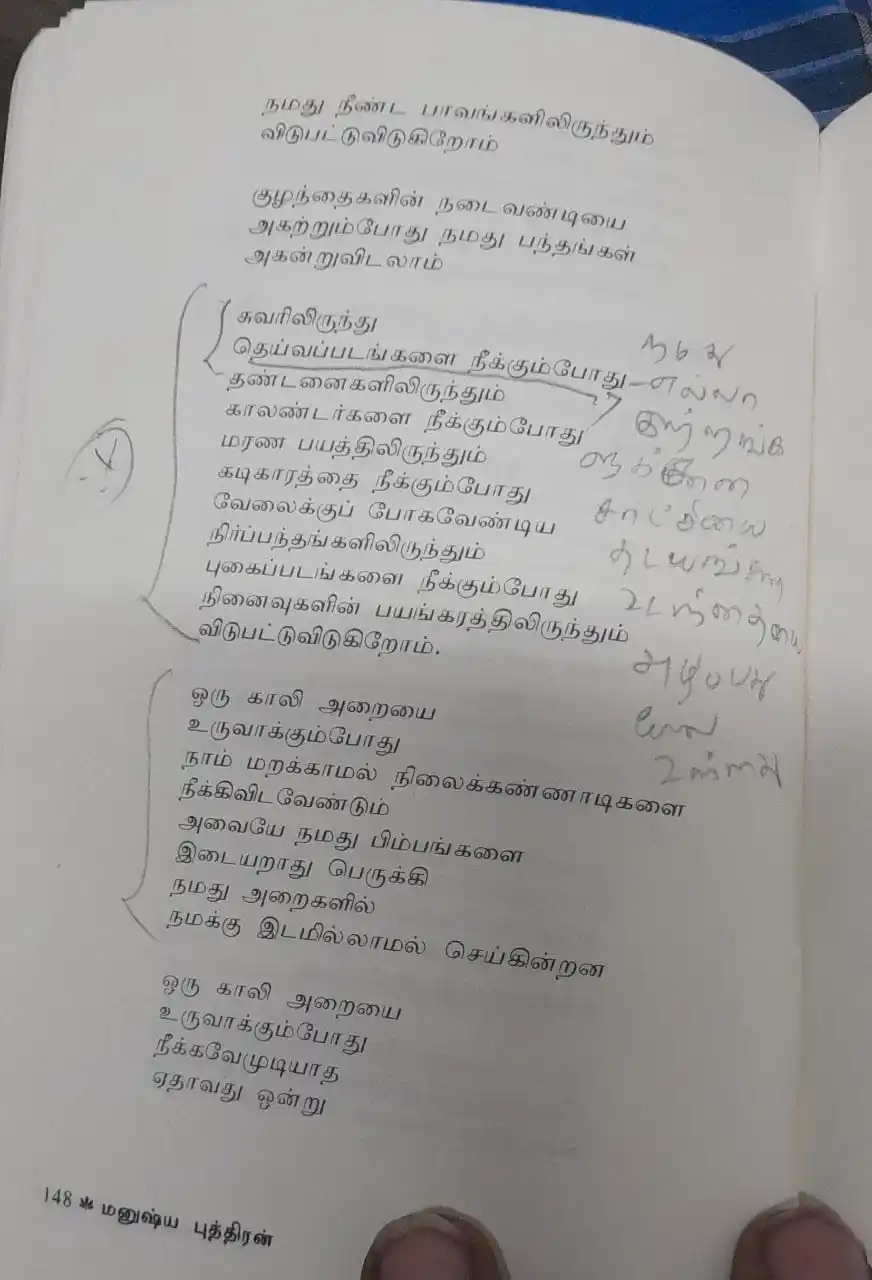 நமது நீண்ட பாவங்களிலிருந்தும்
விடுபட்டுவிடுகிறோம்
குழந்தைகளின் நடைவண்டியை
அகற்றும்போது நமது பந்தங்கள்
அகன்றுவிடலாம்
சுவரிலிருந்து
தெய்வப்படங்களை நீக்கும்போது
தண்டனைகளிலிருந்தும்
காலண்டர்களை நீக்கும்போது
மரண பயத்திலிருந்தும்
கடிகாரத்தை நீக்கும்போது
வேலைக்குப் போகவேண்டிய
நிர்ப்பந்தங்களிலிருந்தும்
புகைப்படங்களை நீக்கும்போது
நினைவுகளின் பயங்கரத்திலிருந்தும்
விடுபட்டுவிடுகிறோம்.
நமது
எல்லா
குற்றங்க
சாட்சியை
அழிப்பது
போல
உள்ளது
ஒரு காலி அறையை
உருவாக்கும்போது
நாம் மறக்காமல் நிலைக்கண்ணாடிகளை
நீக்கிவிடவேண்டும்
அவையே நமது பிம்பங்களை
இடையறாது பெருக்கி
நமது அறைகளில்
நமக்கு இடமில்லாமல் செய்கின்றன
ஒரு காலி அறையை
உருவாக்கும்போது
நீக்கவேமுடியாத
ஏதாவது ஒன்று
148 ❋ மனுஷ்ய புத்திரன்